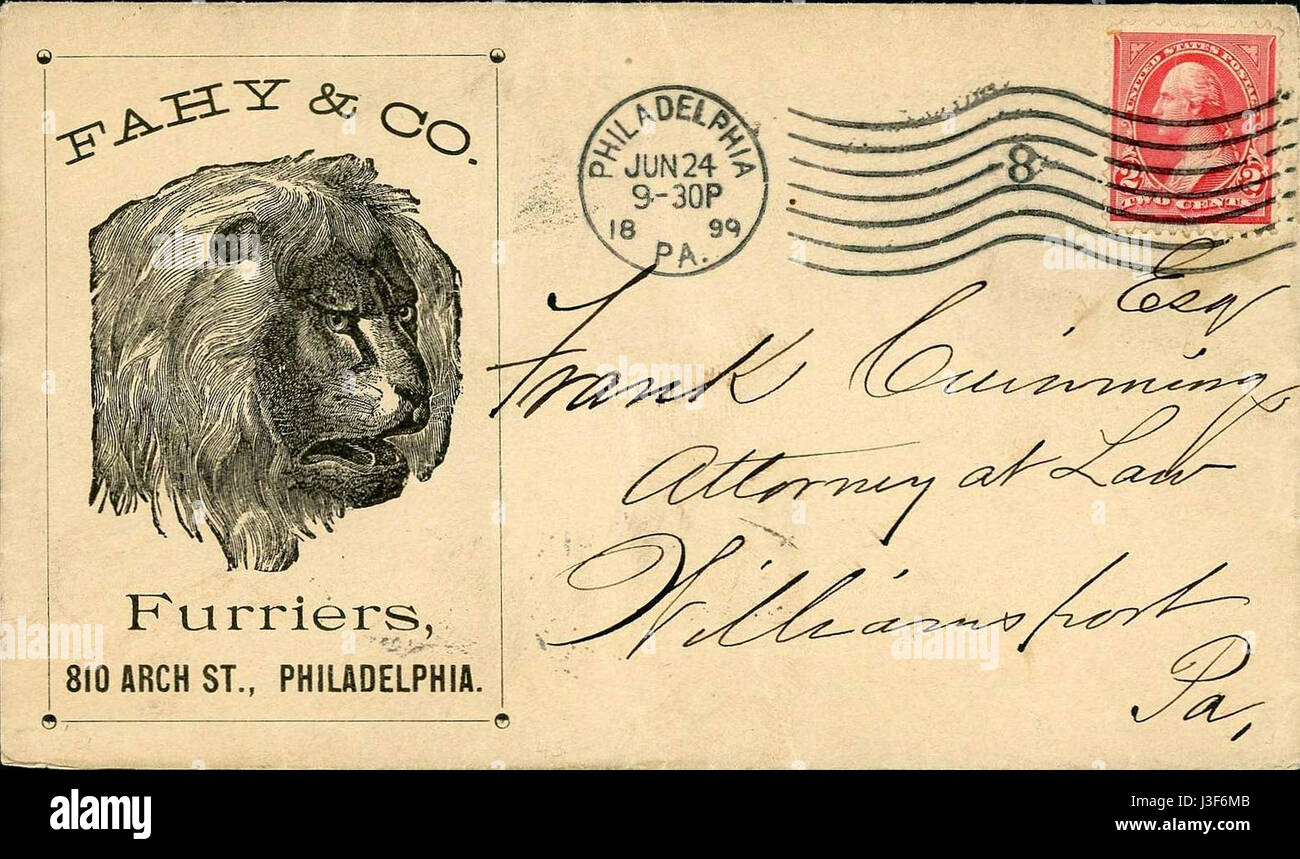 FAHY & CO.
Furriers,
810 ARCH ST., PHILADELPHIA.
PHILADELPHIA
JUN 24
9-30P
18 99
PA.
8
UNITED STATES POSTAGE
2 2
TWO CENTS
Esq
Frank Cumming
Attorney at Law
Williamsport
Pa,
a alamy stock photo
alamy
Image ID: J3F6MB
www.alamy.com